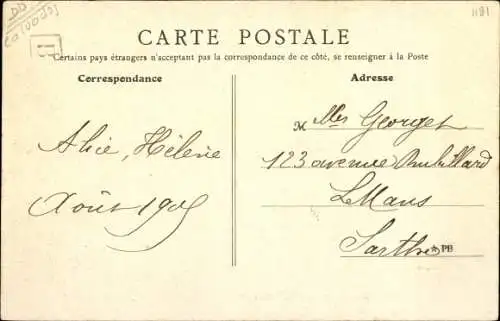 1191
CARTE POSTALE
Certains pays étrangers n'acceptant pas la correspondance de ce côté, se renseigner à la Poste
Correspondance
Adresse
Alice, Hélène
Août 1905
M Mlles Georget
123 avenue Rubillard
Le Mans
Sarthe
PB